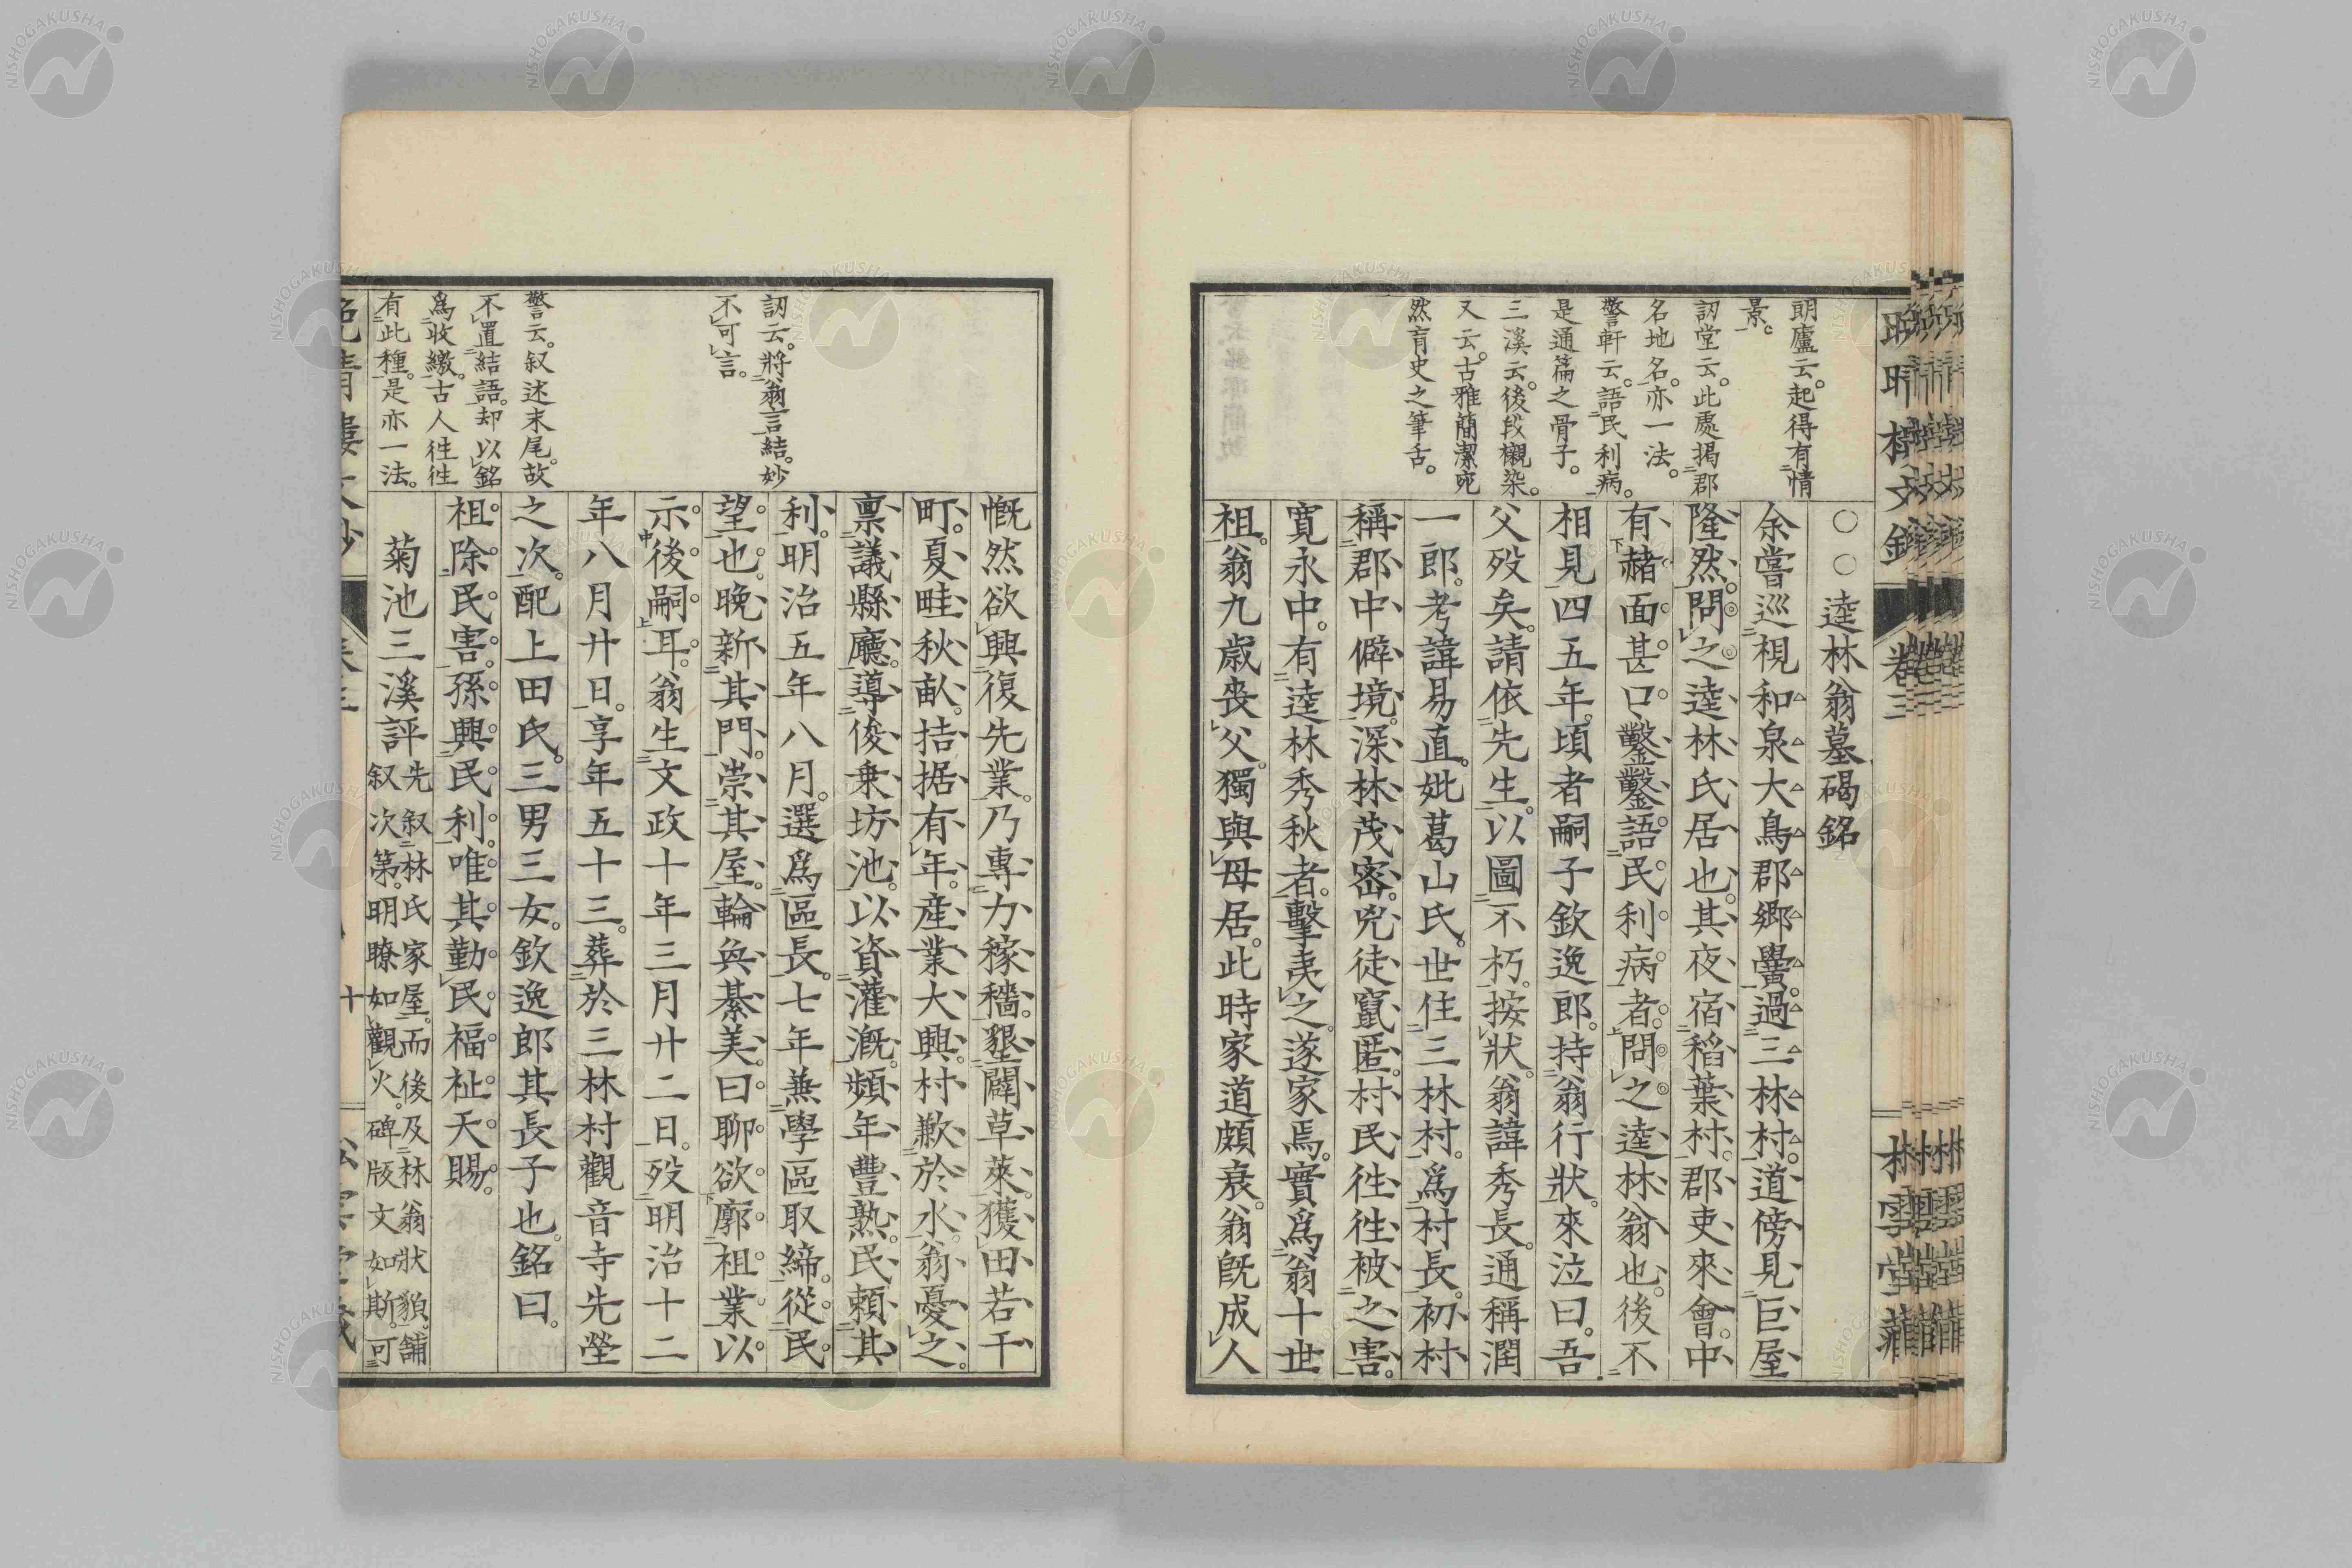 朗廬云。起得有情
景。
訒堂云。此處揭郡
名地名。亦一法。
警軒云。語民利病。
是通篇之骨子。
三溪云。後段襯染。
又云。古雅簡潔宛
然肓史之筆舌。
○○逵林翁墓碣銘
余嘗巡視和泉大鳥郡鄉黌。過三林村。道傍見巨屋
隆然。問之逵林氏居也。其夜宿稻葉村。郡吏來會。中
有赭面。甚口鑿鑿語民利病者。問之逵林翁也。後不
相見四五年。頃者嗣子欽逸郎。持翁行狀。來泣曰。吾
父歿矣。請依先生。以圖不朽。按狀。翁諱秀長。通稱潤
一郎。考諱易直。妣葛山氏。世住三林村。爲村長。初村
稱郡中僻境。深林茂密。兇徒竄匿。村民往往被之害。
寬永中。有逵林秀秋者。擊夷之。遂家焉。實爲翁十世
祖。翁九歲喪父。獨與母居。此時家道頗衰。翁既成人
卷三
訒云。將翁言結。妙
不可言。
警云。叙述末尾。故
不置結語。却以銘
爲收繳。古人往往
有此種。是亦一法。
慨然欲興復先業。乃專力稼穡。墾闢草萊。獲田若干
町。夏畦秋畝。拮据有年。產業大興。村歉於水。翁憂之。
稟議縣廳。導俊乘坊池。以資灌漑。頻年豐熟。民賴其
利。明治五年八月。選爲區長。七年兼學區取締。從民
望也。晚新其門。崇其屋。輪奐綦美。曰聊欲廓祖業。以
示後嗣耳。翁生文政十年三月廿二日。歿明治十二
年八月廿日。享年五十三。葬於三林村觀音寺先塋
之次。配上田氏。三男三女。欽逸郎其長子也。銘曰。
祖除民害。孫興民利。唯其勤民。福祉天賜。
菊池三溪評 先叙林氏家屋。而後及林翁狀貌。舖
叙次第。明瞭如觀火。碑版文如斯。可